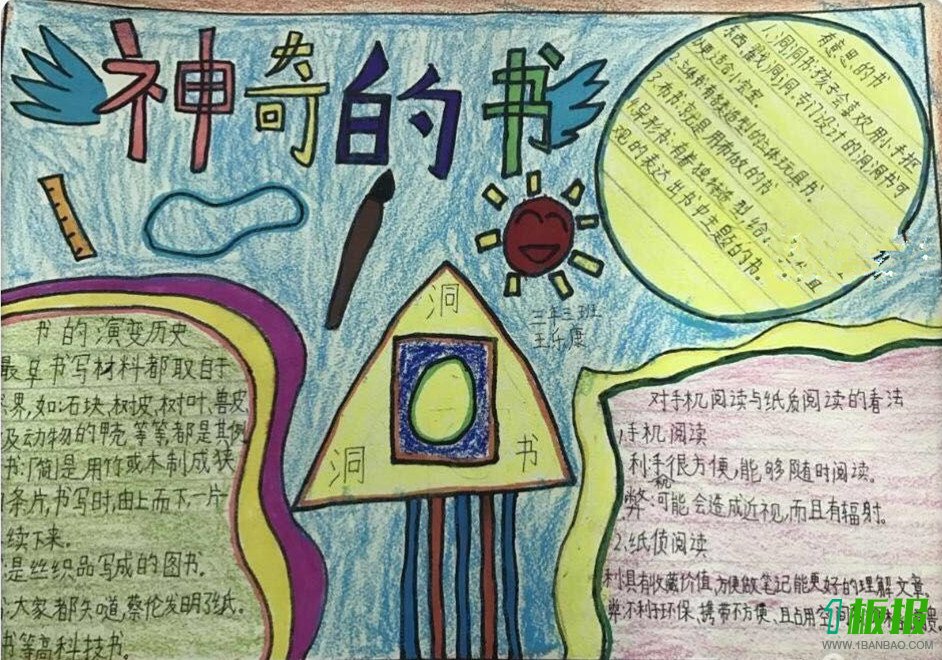 神奇的书
有意思的书
1.洞洞书:孩子会喜欢用小手抠
东西,戳洞洞,专门设计的洞洞书可
更适合小宝宝
2.立体书:有着造型的立体玩具书.
3.布书:就是用布做的书
4.异形书:有着独特造型,给
现的表达出书中主题的书.
洞
洞
书
三年三班
王乐康
书的演变历史
最早书写材料都取自于
界,如:石块、树坡、树叶、兽皮,
及动物的壳等等都是其例
书:「简」是用竹或木制成狭
条片,书写时,由上而下一片
续下来。
是丝织品写成的图书.
大家都知道,蔡伦发明了纸.
书等高科技书.
对手机阅读与纸质阅读的看法
1.手机阅读
利:手机很方便,能够随时阅读。
弊:可能会造成近视,而且有辐射。
2.纸质阅读
利:具有收藏价值,方便做笔记能更好的理解文章
弊:不利于环保、携带不方便、且占用空间
1板报
WWW.1BANBAO.COM